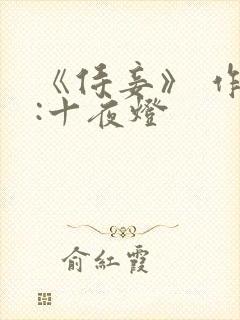 《侯妾》 作
:十夜燈
俞紅霞